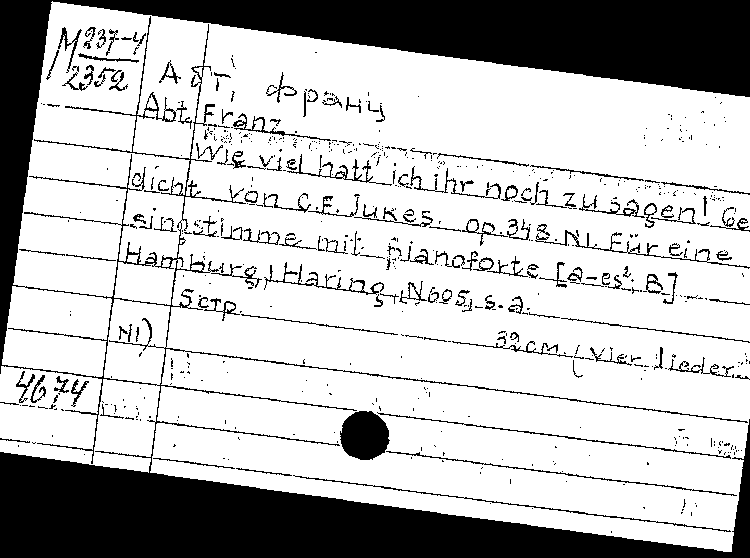 M 237-4
2352
Абт, Франц
Abt, Franz.
Wie viel hatt ich ihr noch zu sagen! Ge
dicht von C.F. Jukes. op. 348. N1. Für eine
singstimme mit pianoforte [a-es²; B]
Hamburg, Haring, N605, s.a.
5 стр. 32 см. (Vier lieder.
N1)
4674